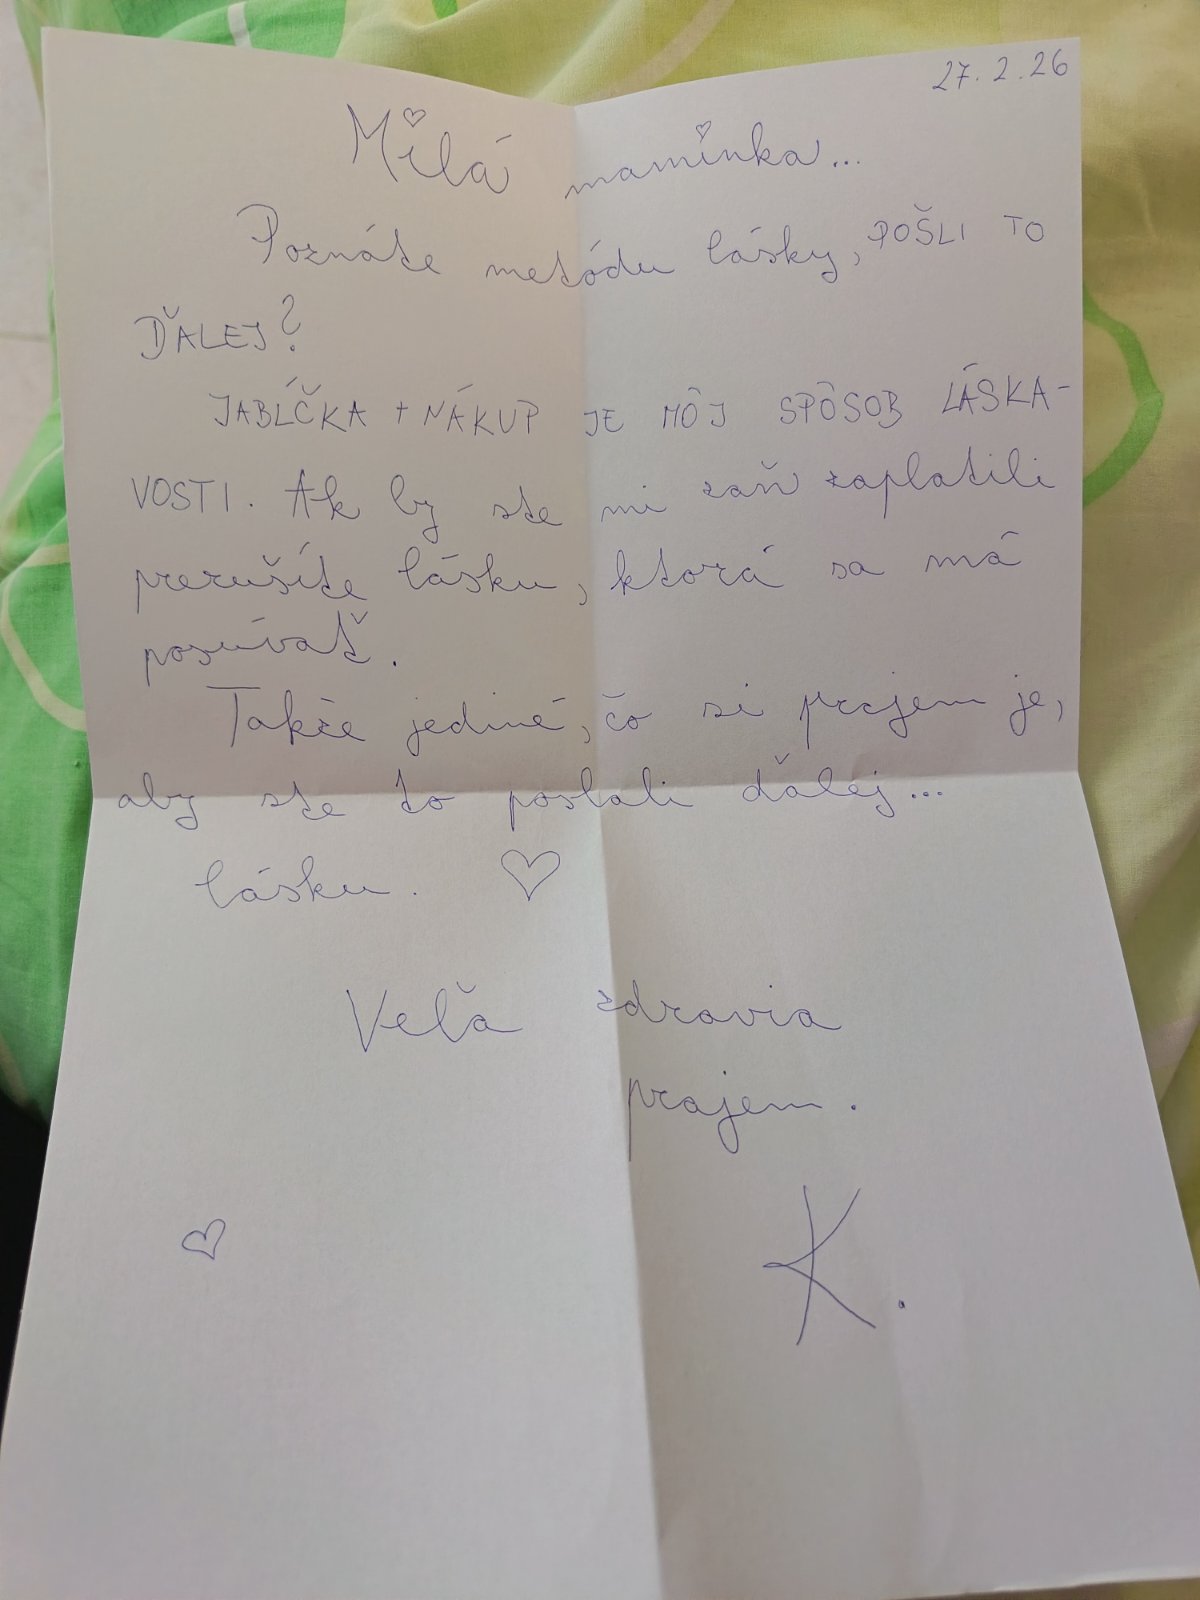 27.2.26
Milá maminka...
Poznáte metódu lásky, POŠLI TO
ĎALEJ?
JABĹČKA + NÁKUP JE MÔJ SPÔSOB LÁSKA-
VOSTI. Ak by ste mi zaň zaplatili
prerušíte lásku, ktorá sa má
posúvať.
Takže jediné, čo si prajem je,
aby ste to poslali ďalej...
lásku. ♡
Veľa zdravia
prajem.
♡ K.